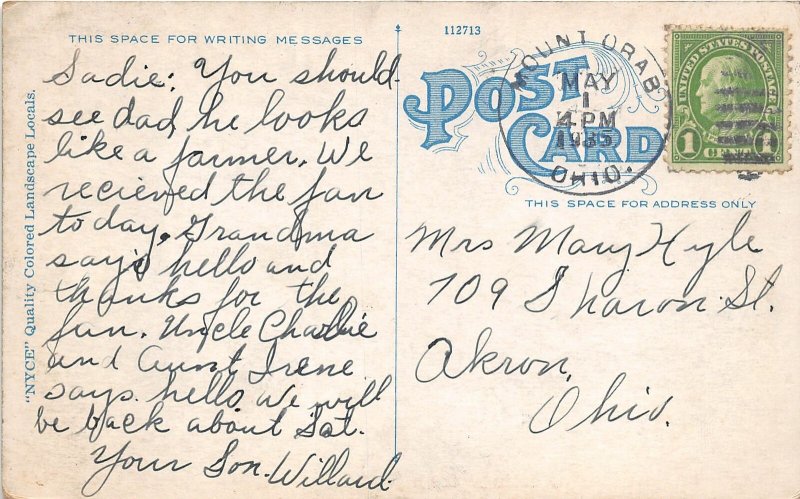 THIS SPACE FOR WRITING MESSAGES
Sadie: You should
see dad, he looks
like a farmer. We
recieved the fan
to day. Grandma
says hello and
thanks for the
fan. Uncle Charlie
and Aunt Irene
says hello We will
be back about Sat.
Your Son. Willard
"NYCE" Quality Colored Landscape Locals.
112713
POST
CARD
MOUNT ORAB
MAY
1
4 PM
1935
OHIO.
UNITED STATES POSTAGE
1
CENT
THIS SPACE FOR ADDRESS ONLY
Mrs Mary Hyle
709 Sharon St.
Akron,
Ohio.